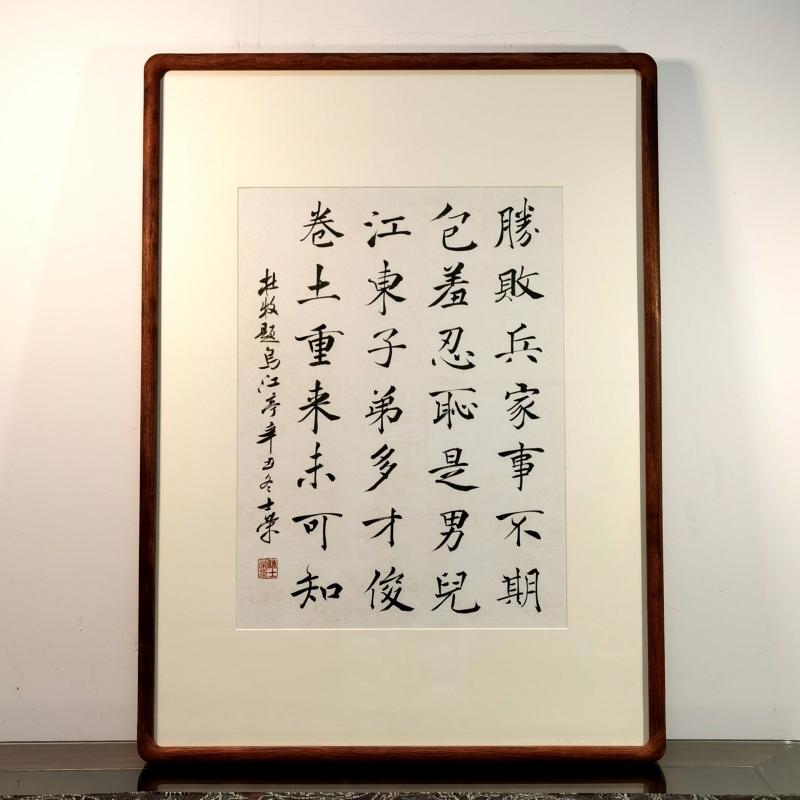 勝敗兵家事不期
包羞忍恥是男兒
江東子弟多才俊
卷土重来未可知
杜牧題烏江亭辛丑冬士榮